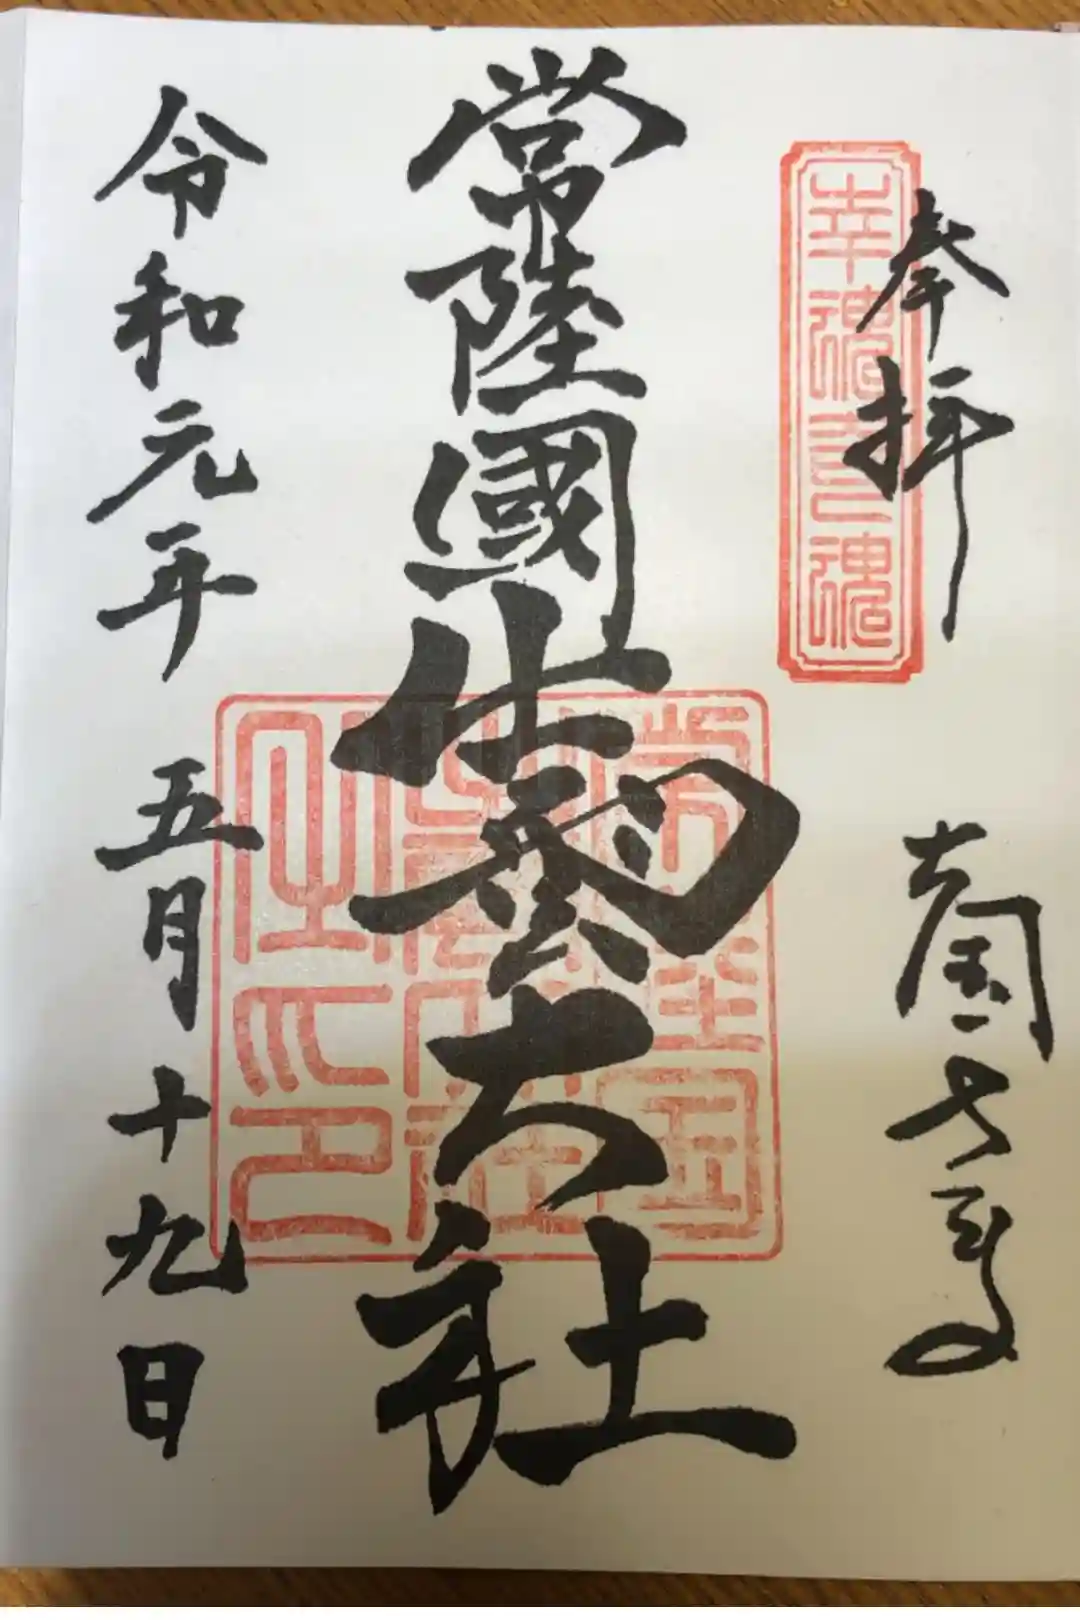 奉拝
幸魂奇魂
常陸國出雲大社
常陸国
出雲大社
之印
令和元年五月十九日